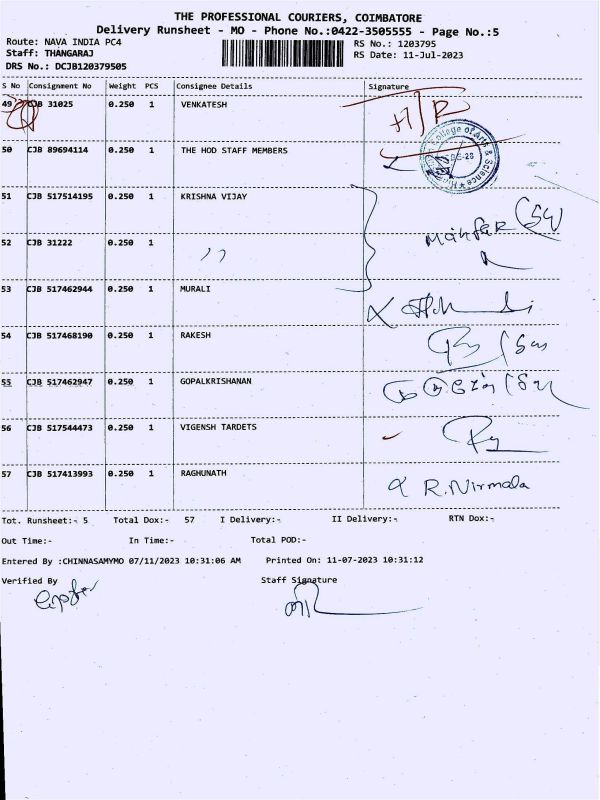 THE PROFESSIONAL COURIERS, COIMBATORE
Delivery Runsheet - MO - Phone No.:0422-3505555 - Page No.:5
Route: NAVA INDIA PC4 RS No.: 1203795
Staff: THANGARAJ RS Date: 11-Jul-2023
DRS No.: DCJB120379505
S No Consignment No Weight PCS Consignee Details Signature
49 CJB 31025 0.250 1 VENKATESH
50 CJB 89694114 0.250 1 THE HOD STAFF MEMBERS
College of Arts & Science
51 CJB 517514195 0.250 1 KRISHNA VIJAY
52 CJB 31222 0.250 1
53 CJB 517462944 0.250 1 MURALI
54 CJB 517468190 0.250 1 RAKESH
55 CJB 517462947 0.250 1 GOPALKRISHANAN
56 CJB 517544473 0.250 1 VIGENSH TARDETS
57 CJB 517413993 0.250 1 RAGHUNATH R. Nirmala
Tot. Runsheet:- 5 Total Dox:- 57 I Delivery:- II Delivery:- RTN Dox:-
Out Time:- In Time:- Total POD:-
Entered By :CHINNASAMYMO 07/11/2023 10:31:06 AM Printed On: 11-07-2023 10:31:12
Verified By Staff Signature